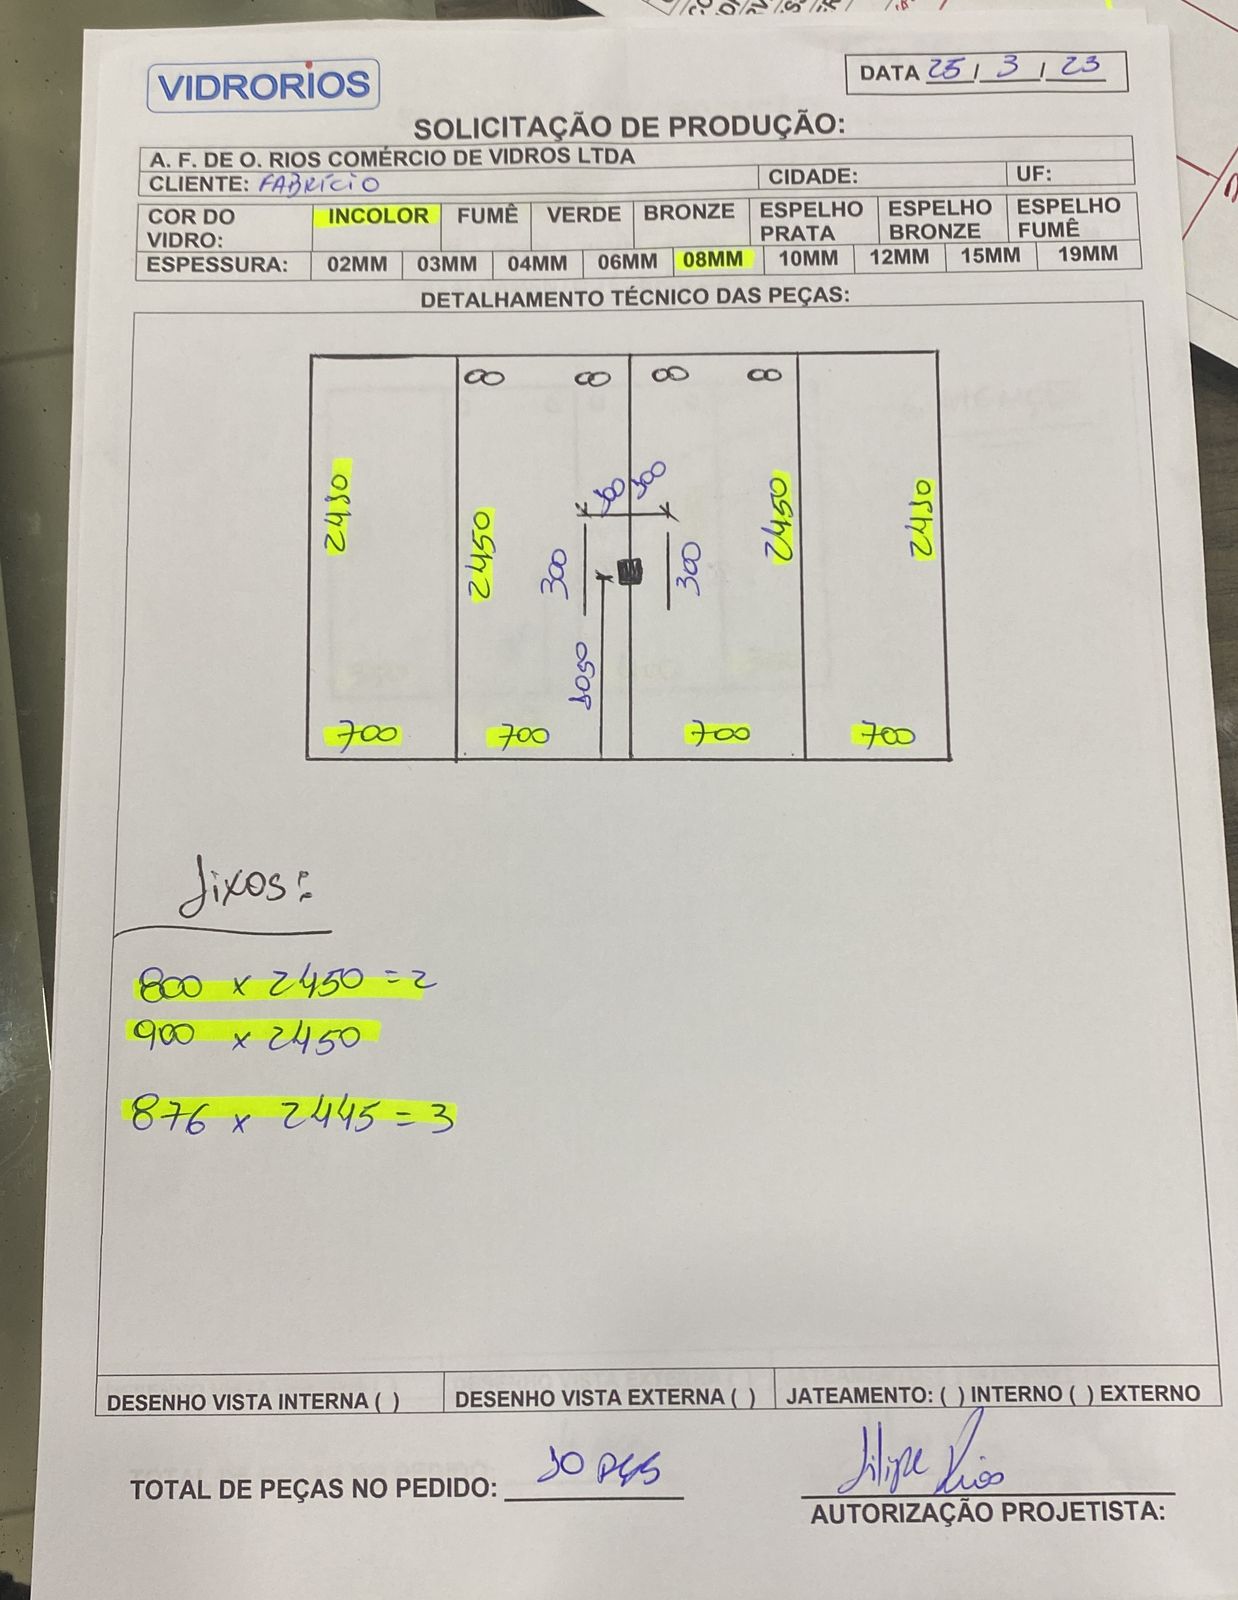 VIDRORIOS
DATA 25 / 3 / 23
SOLICITAÇÃO DE PRODUÇÃO:
A. F. DE O. RIOS COMÉRCIO DE VIDROS LTDA
CLIENTE: FABRÍCIO CIDADE: UF:
COR DO VIDRO: INCOLOR FUMÊ VERDE BRONZE ESPELHO PRATA ESPELHO BRONZE ESPELHO FUMÊ
ESPESSURA: 02MM 03MM 04MM 06MM 08MM 10MM 12MM 15MM 19MM
DETALHAMENTO TÉCNICO DAS PEÇAS:
2410
2450
300
300
1050
300
300
2450
2410
700 700 700 700
fixos:
800 x 2450 = 2
900 x 2450
876 x 2445 = 3
DESENHO VISTA INTERNA ( ) DESENHO VISTA EXTERNA ( ) JATEAMENTO: ( ) INTERNO ( ) EXTERNO
TOTAL DE PEÇAS NO PEDIDO: 10 pçs
Filipe Rios
AUTORIZAÇÃO PROJETISTA: